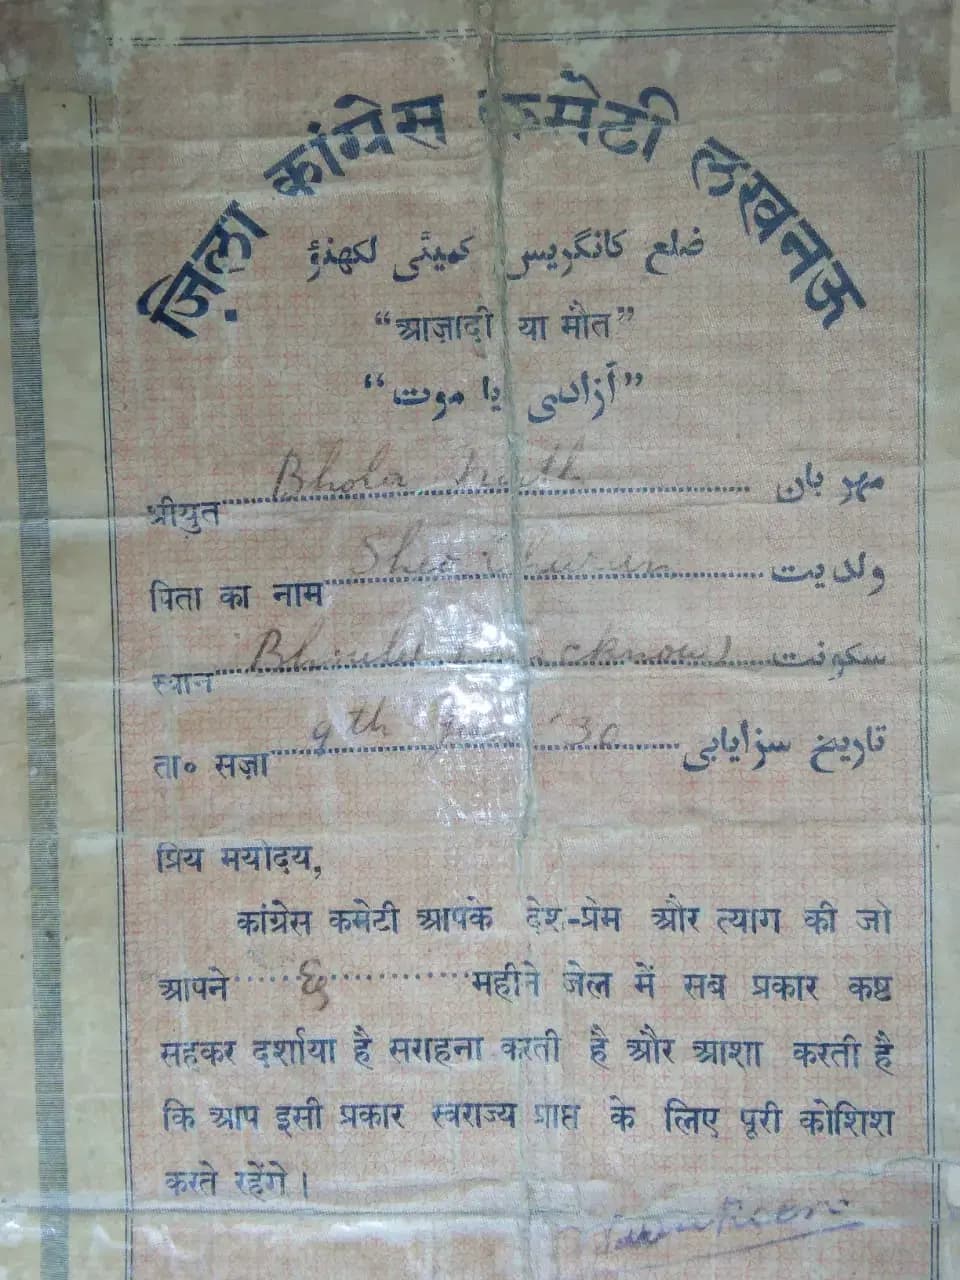 ज़िला कांग्रेस कमेटी लखनऊ
ضلع کانگریس کمیٹی لکھنؤ
“आज़ादी या मौत”
“آزادی یا موت”
श्रीयुत Bhola Nath مہربان
पिता का नाम Sheo ولدیت
स्थान سکونت
ता० सज़ा 9th '30 تاریخ سزایابی
प्रिय मयोदय,
कांग्रेस कमेटी आपके देश-प्रेम और त्याग की जो
आपने छ महीने जेल में सब प्रकार कष्ट
सहकर दर्शाया है सराहना करती है और आशा करती है
कि आप इसी प्रकार स्वराज्य प्राप्त के लिए पूरी कोशिश
करते रहेंगे।